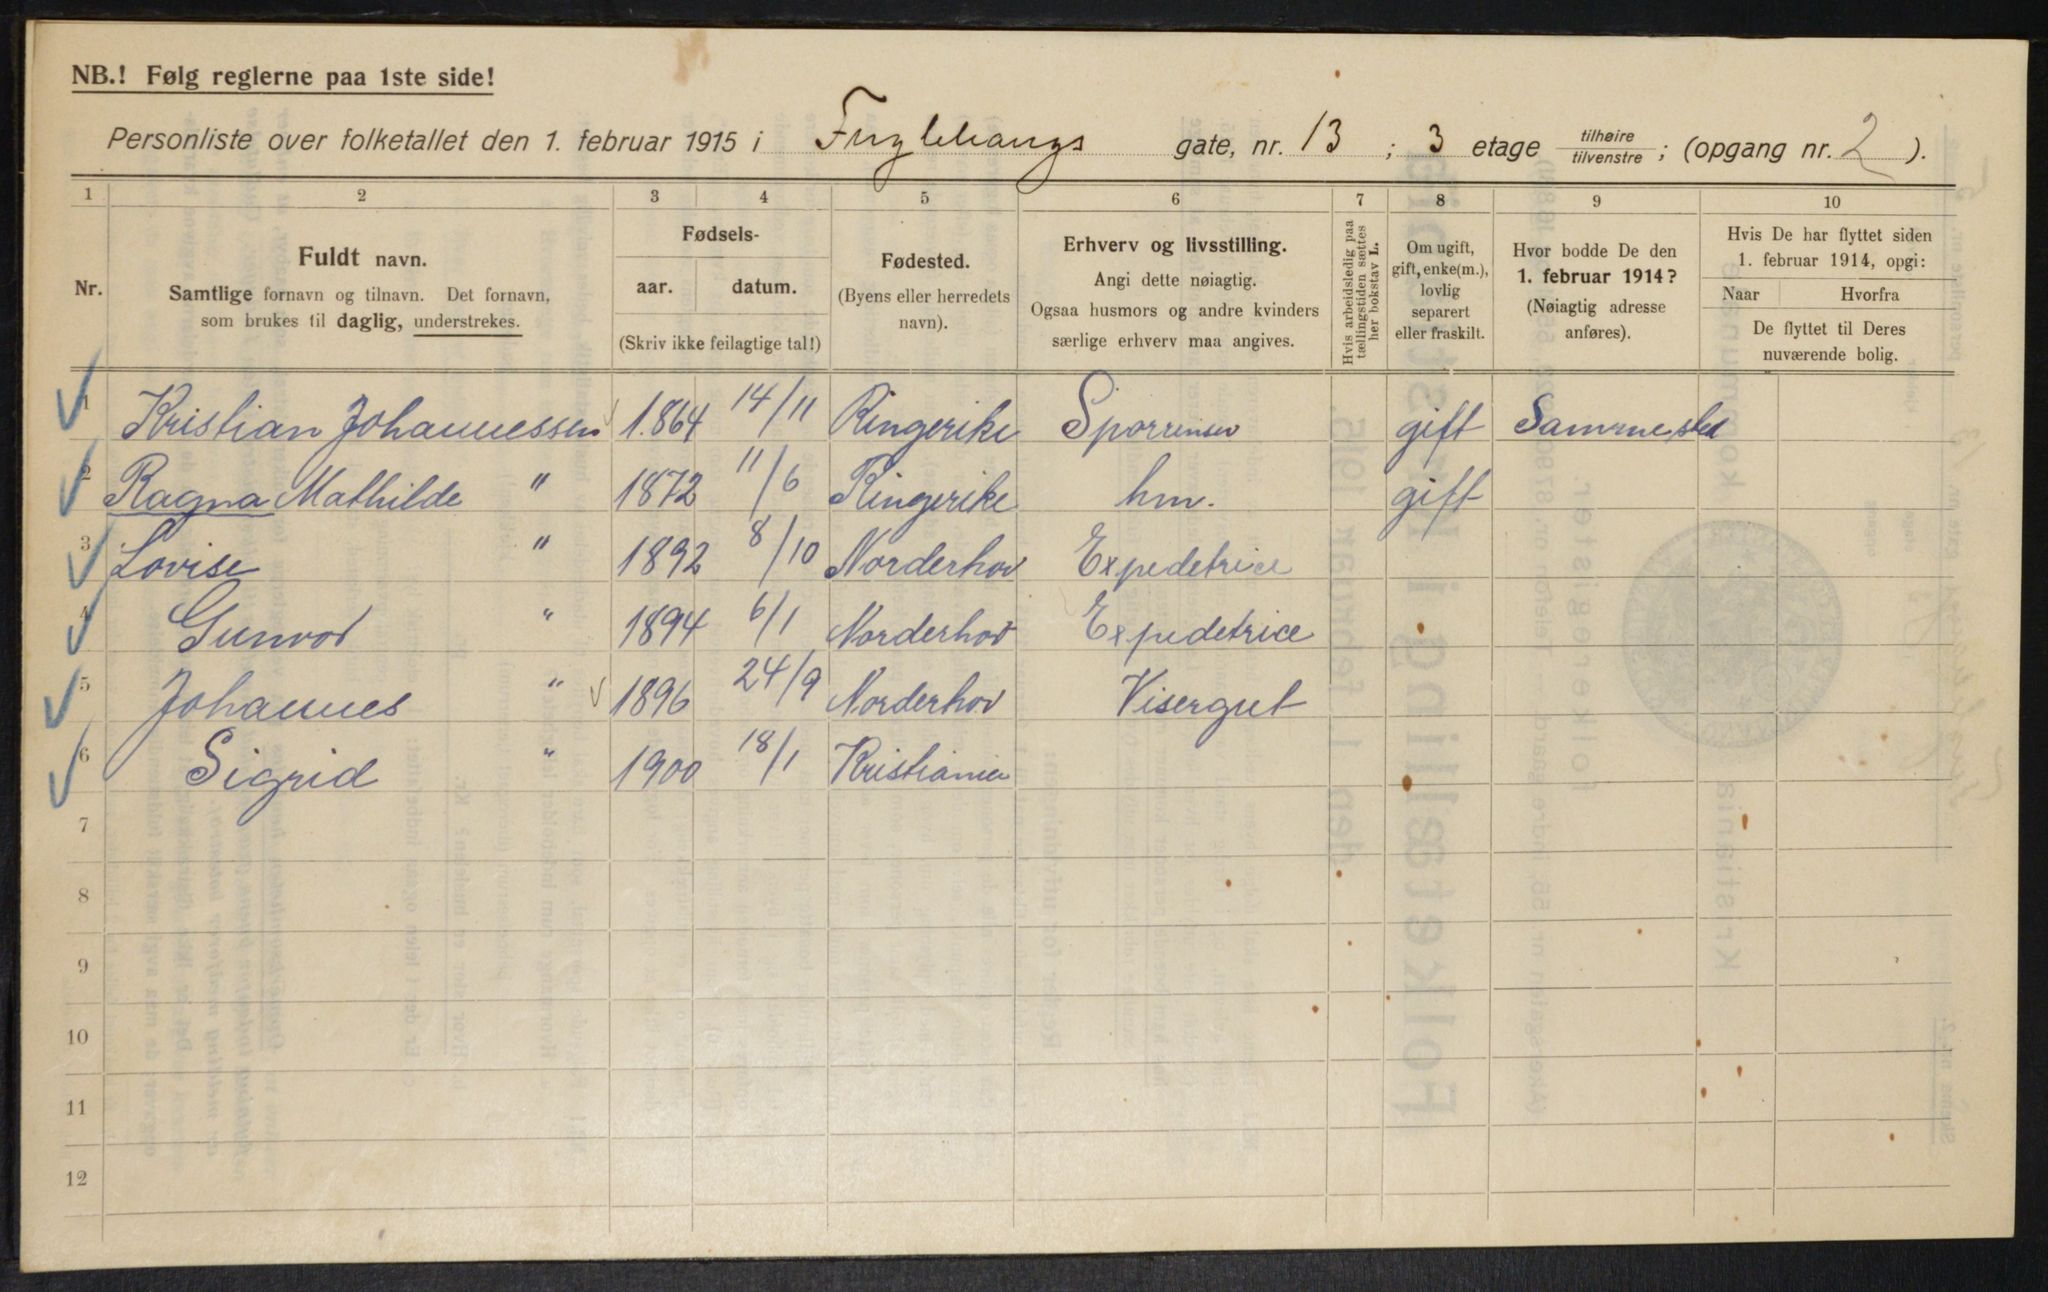 NB.! Følg reglerne paa 1ste side!
Personliste over folketallet den 1. februar 1915 i Fuglehaugs gate, nr. 13 ; 3 etage tilhøire/tilvenstre ; (opgang nr. 2 ).
1 2 3 4 5 6 7 8 9 10
Nr.
Fuldt navn.
Samtlige fornavn og tilnavn. Det fornavn,
som brukes til daglig, understrekes.
Fødsels-
aar. datum.
(Skriv ikke feilagtige tal!)
Fødested.
(Byens eller herredets
navn).
Erhverv og livsstilling.
Angi dette nøiagtig.
Ogsaa husmors og andre kvinders
særlige erhverv maa angives.
Hvis arbeidsledig paa
tællingstiden sættes
her bokstav L.
Om ugift,
gift, enke(m.),
lovlig
separert
eller fraskilt.
Hvor bodde De den
1. februar 1914?
(Nøiagtig adresse
anføres).
Hvis De har flyttet siden
1. februar 1914, opgi:
Naar Hvorfra
De flyttet til Deres
nuværende bolig.
1 Kristian Johannessen 1.864 14/11 Ringerike gift Sammested
2 Ragna Mathilde " 1872 11/6 Ringerike hm. gift
3 Lovise " 1892 8/10 Norderhov Expedetrice
4 Gunvor " 1894 6/1 Norderhov Expedetrice
5 Johannes " 1896 24/9 Norderhov Visergut
6 Sigrid " 1900 18/1 Kristiania
7
8
9
10
11
12